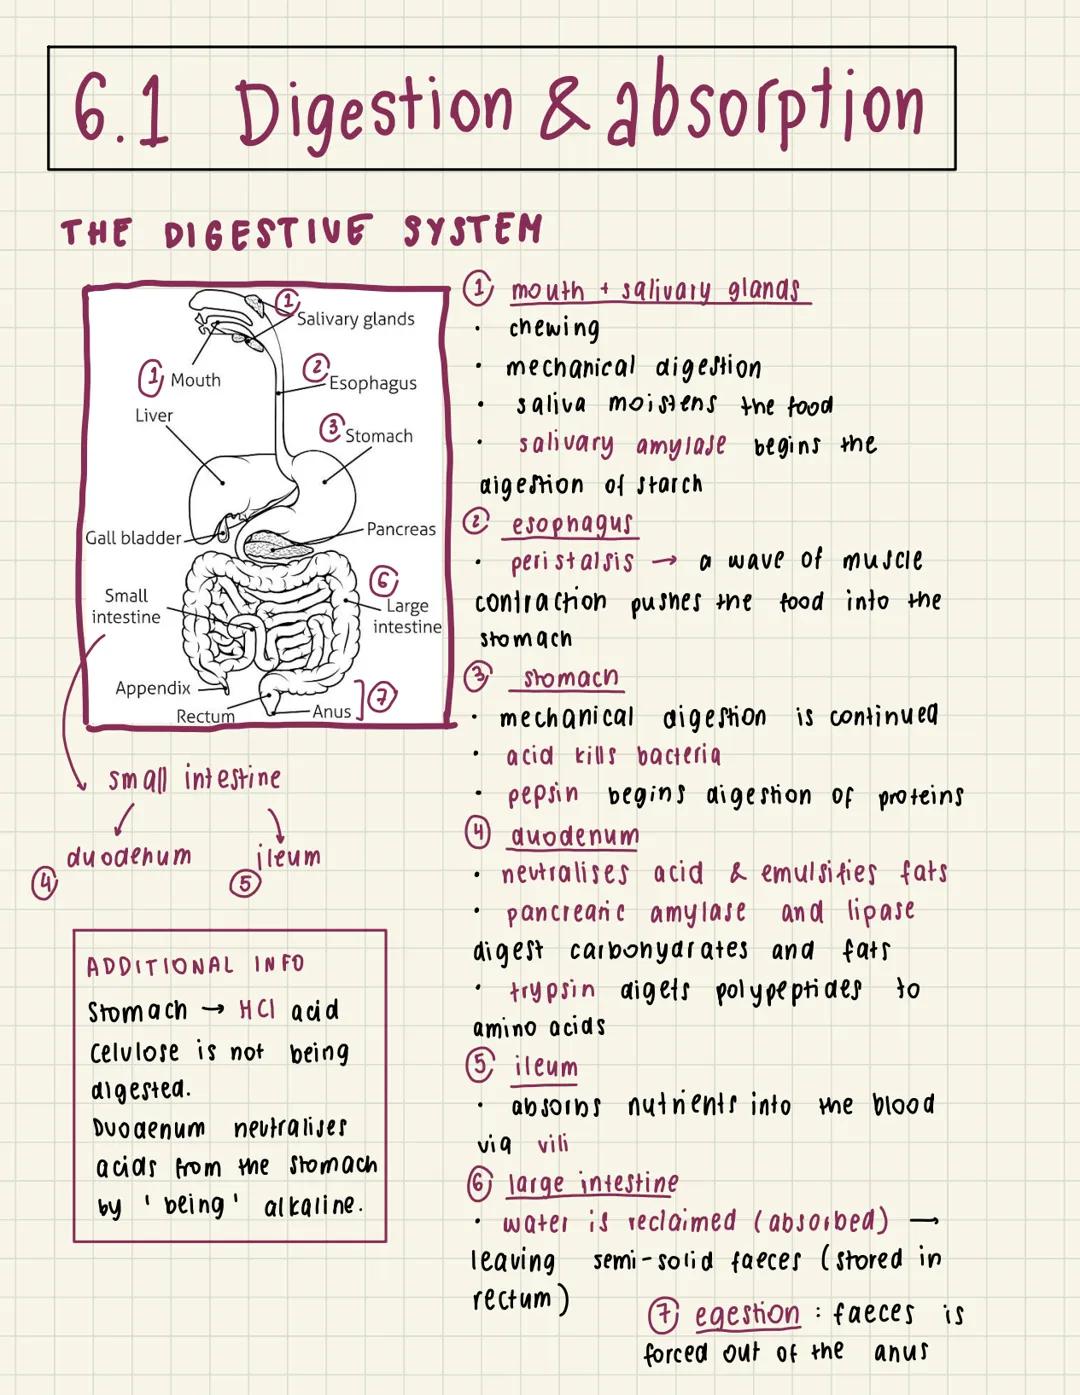 6.1 Digestion & absorption
THE DIGESTIVE SYSTEM
1 Salivary glands
1 Mouth
2 Esophagus
Liver
3 Stomach
Gall bladder
Pancreas
Small
intestine
6 Large
intestine
Appendix
Rectum
Anus ] 7
small intestine
duodenum
4
ileum
5
ADDITIONAL INFO
Stomach → HCl acid
Celulose is not being
digested.
Duodenum neutralises
acids from the stomach
by 'being' alkaline.
1 mouth + salivary glands
• chewing
• mechanical digestion
• saliva moistens the food
• salivary amylase begins the
digestion of starch
2 esophagus
• peristalsis → a wave of muscle
contraction pushes the food into the
stomach
3 stomach
• mechanical digestion is continued
• acid kills bacteria
• pepsin begins digestion of proteins
4 duodenum
• neutralises acid & emulsifies fats
• pancreatic amylase and lipase
digest carbohydrates and fats
• trypsin digets polypeptides to
amino acids
5 ileum
• absorbs nutrients into the blood
via vili
6 large intestine
• water is reclaimed (absorbed) →
leaving semi-solid faeces (stored in
rectum)
7 egestion : faeces is
forced out of the anus